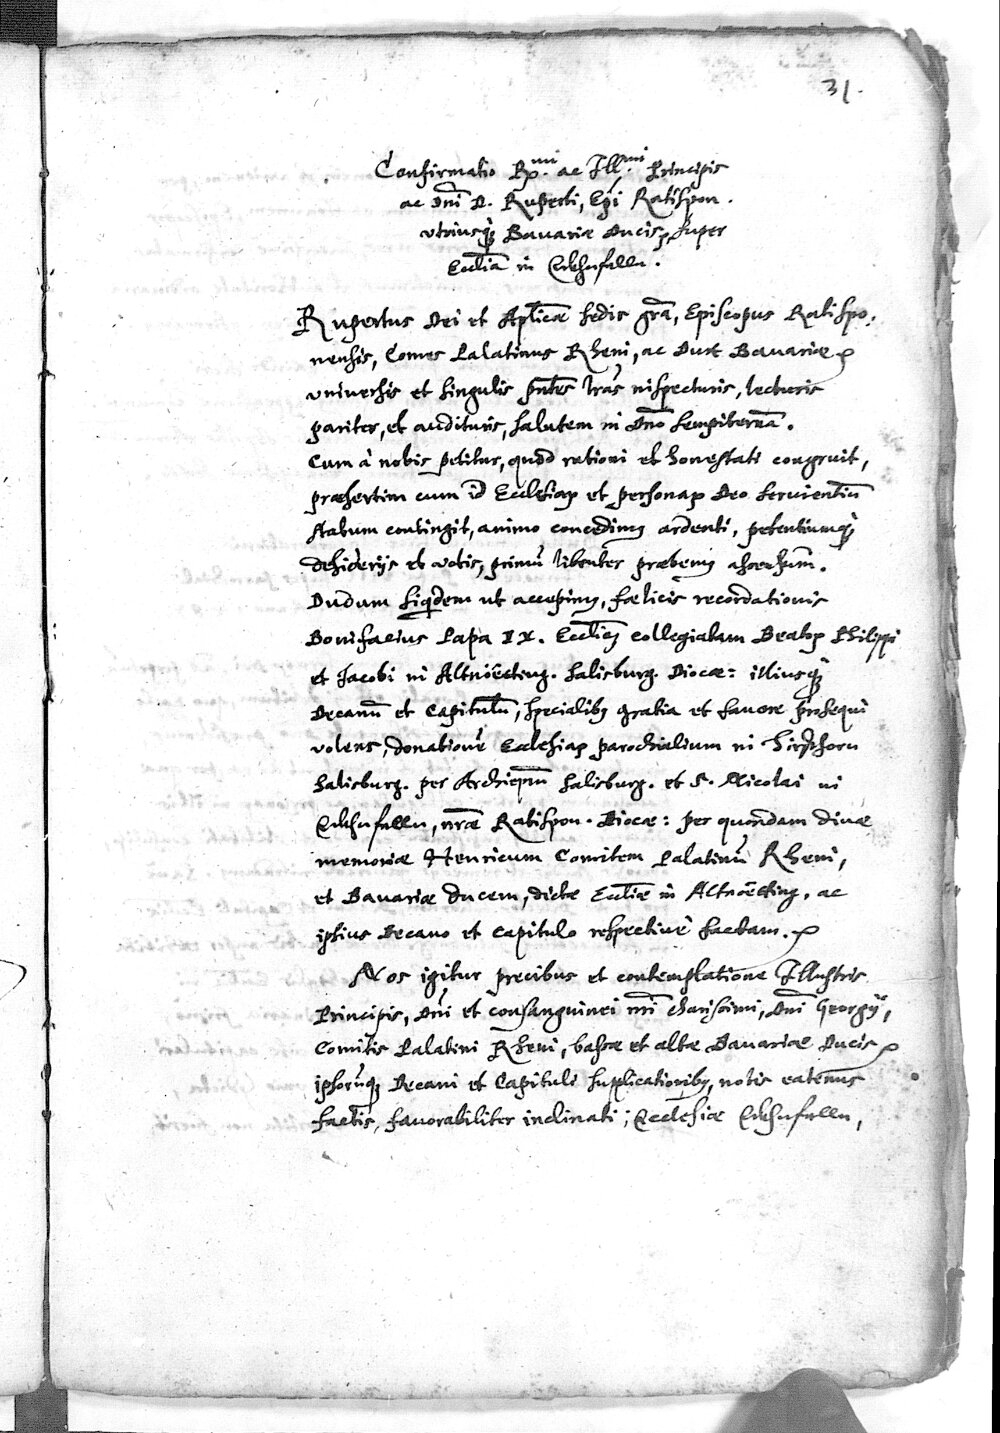 31.
Confirmatio R.mi ac Ill.mi Principis
ac Dni D. Ruperti, Epi Ratispon.
utriusq Bavariæ Ducis, super
Eccliã in
Rupertus Dei et Aplicæ sedis grã, Episcopus Ratispo-
nensis, Comes Palatinus Rheni, ac Dux Bavariæ
universis et singulis pntes lras inspecturis, lecturis
pariter, et audituris, salutem in Dno sempiternã.
Cum à nobis petitur, quod rationi et honestati congruit,
præsertim cum id Ecclesiaꝝ et personaꝝ Deo servientiũ
statum contingit, animo concedimꝰ ardenti, petentiumq
desiderijs et votis, libenter præbemꝰ assensum.
Dudum siqdem ut accepimꝰ, fælicis recordationis
Bonifacius Papa IX. Eccliam collegiatam Beatoꝝ Philippi
et Jacobi in Altnöeting. Salisburg. Diocæ: illiusq
Decanũ et Capitulũ, specialibꝰ gratia et favore prosequi
volens, donationẽ Ecclesiaꝝ parochialium in
Salisburg. per Archiepm Salisburg. et S. Nicolai in
nræ Ratispon. Diocæ: per quondam divæ
memoriæ Henricum Comitem Palatinũ Rheni,
et Bavariæ ducem, dictæ Eccliæ in Altnöeting, ac
ipsius Decano et Capitulo respectivè factam.
Nos igitur precibus et contemplatione Illustris
Principis, Dni et consanguinei nri charissimi, Dni Georgij,
Comitis Palatini Rheni, bassæ et altæ Bavariæ Ducis
ipsorũq Decani et Capituli supplicationibꝰ, nobis eatenus
factis, favorabiliter inclinati; Ecclesiæ